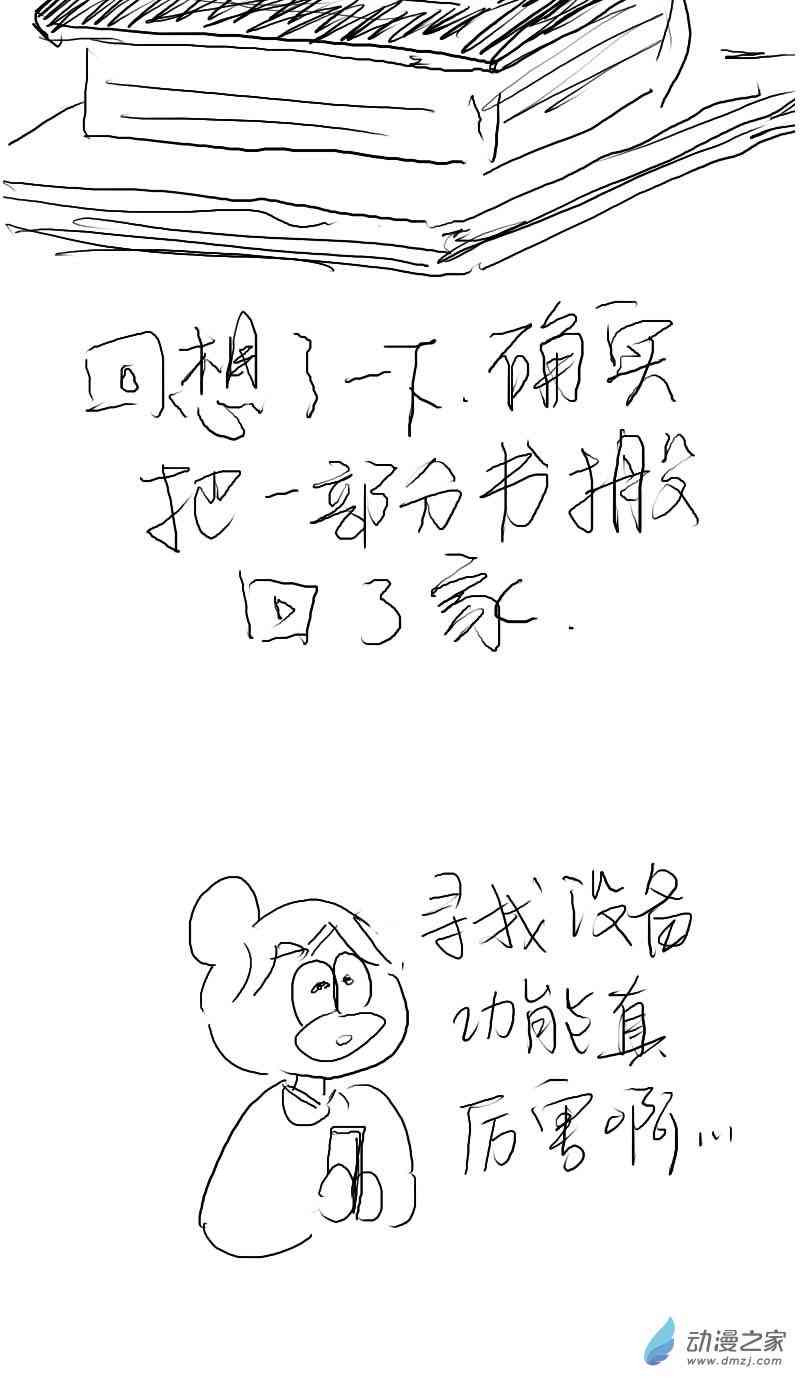 回想了一下.确实
把一部分书搬
回了家.
寻找设备
功能真
厉害啊...
动漫之家
www.dmzj.com